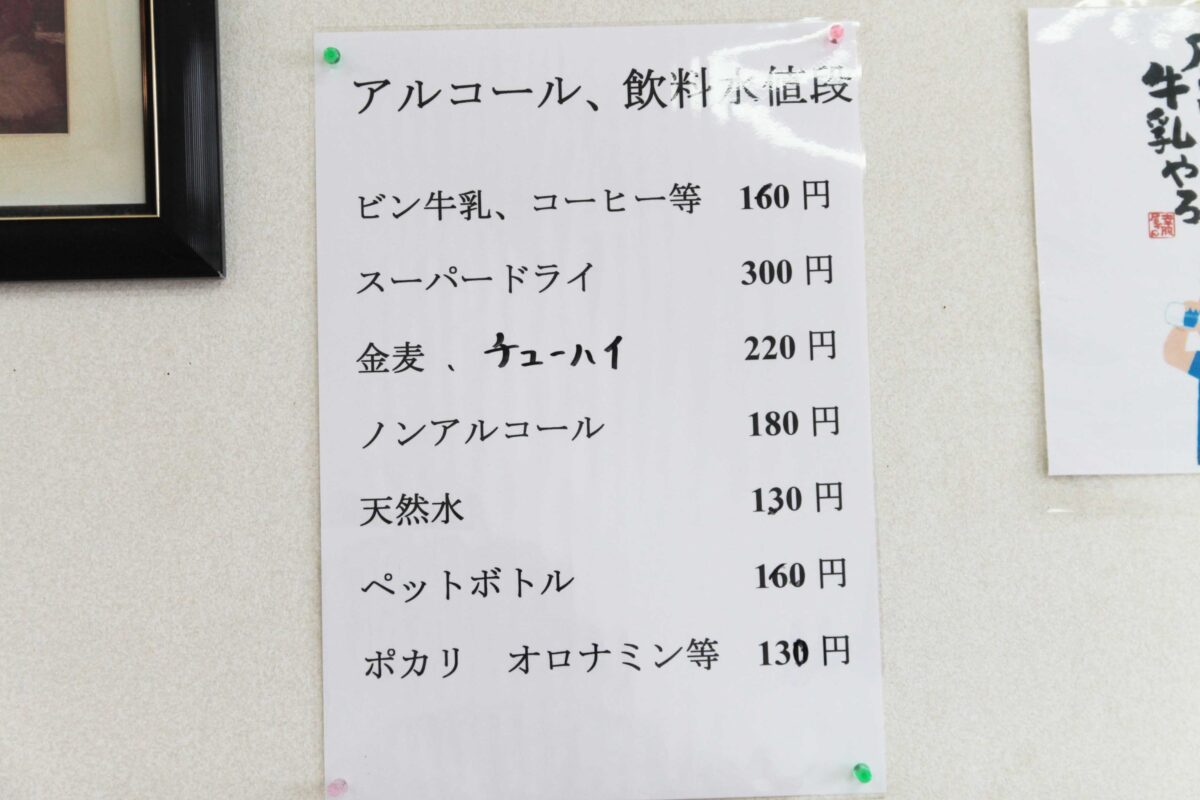 アルコール、飲料水値段
ビン牛乳、コーヒー等 160円
スーパードライ 300円
金麦 、チューハイ 220円
ノンアルコール 180円
天然水 130円
ペットボトル 160円
ポカリ オロナミン等 130円
牛乳やろ